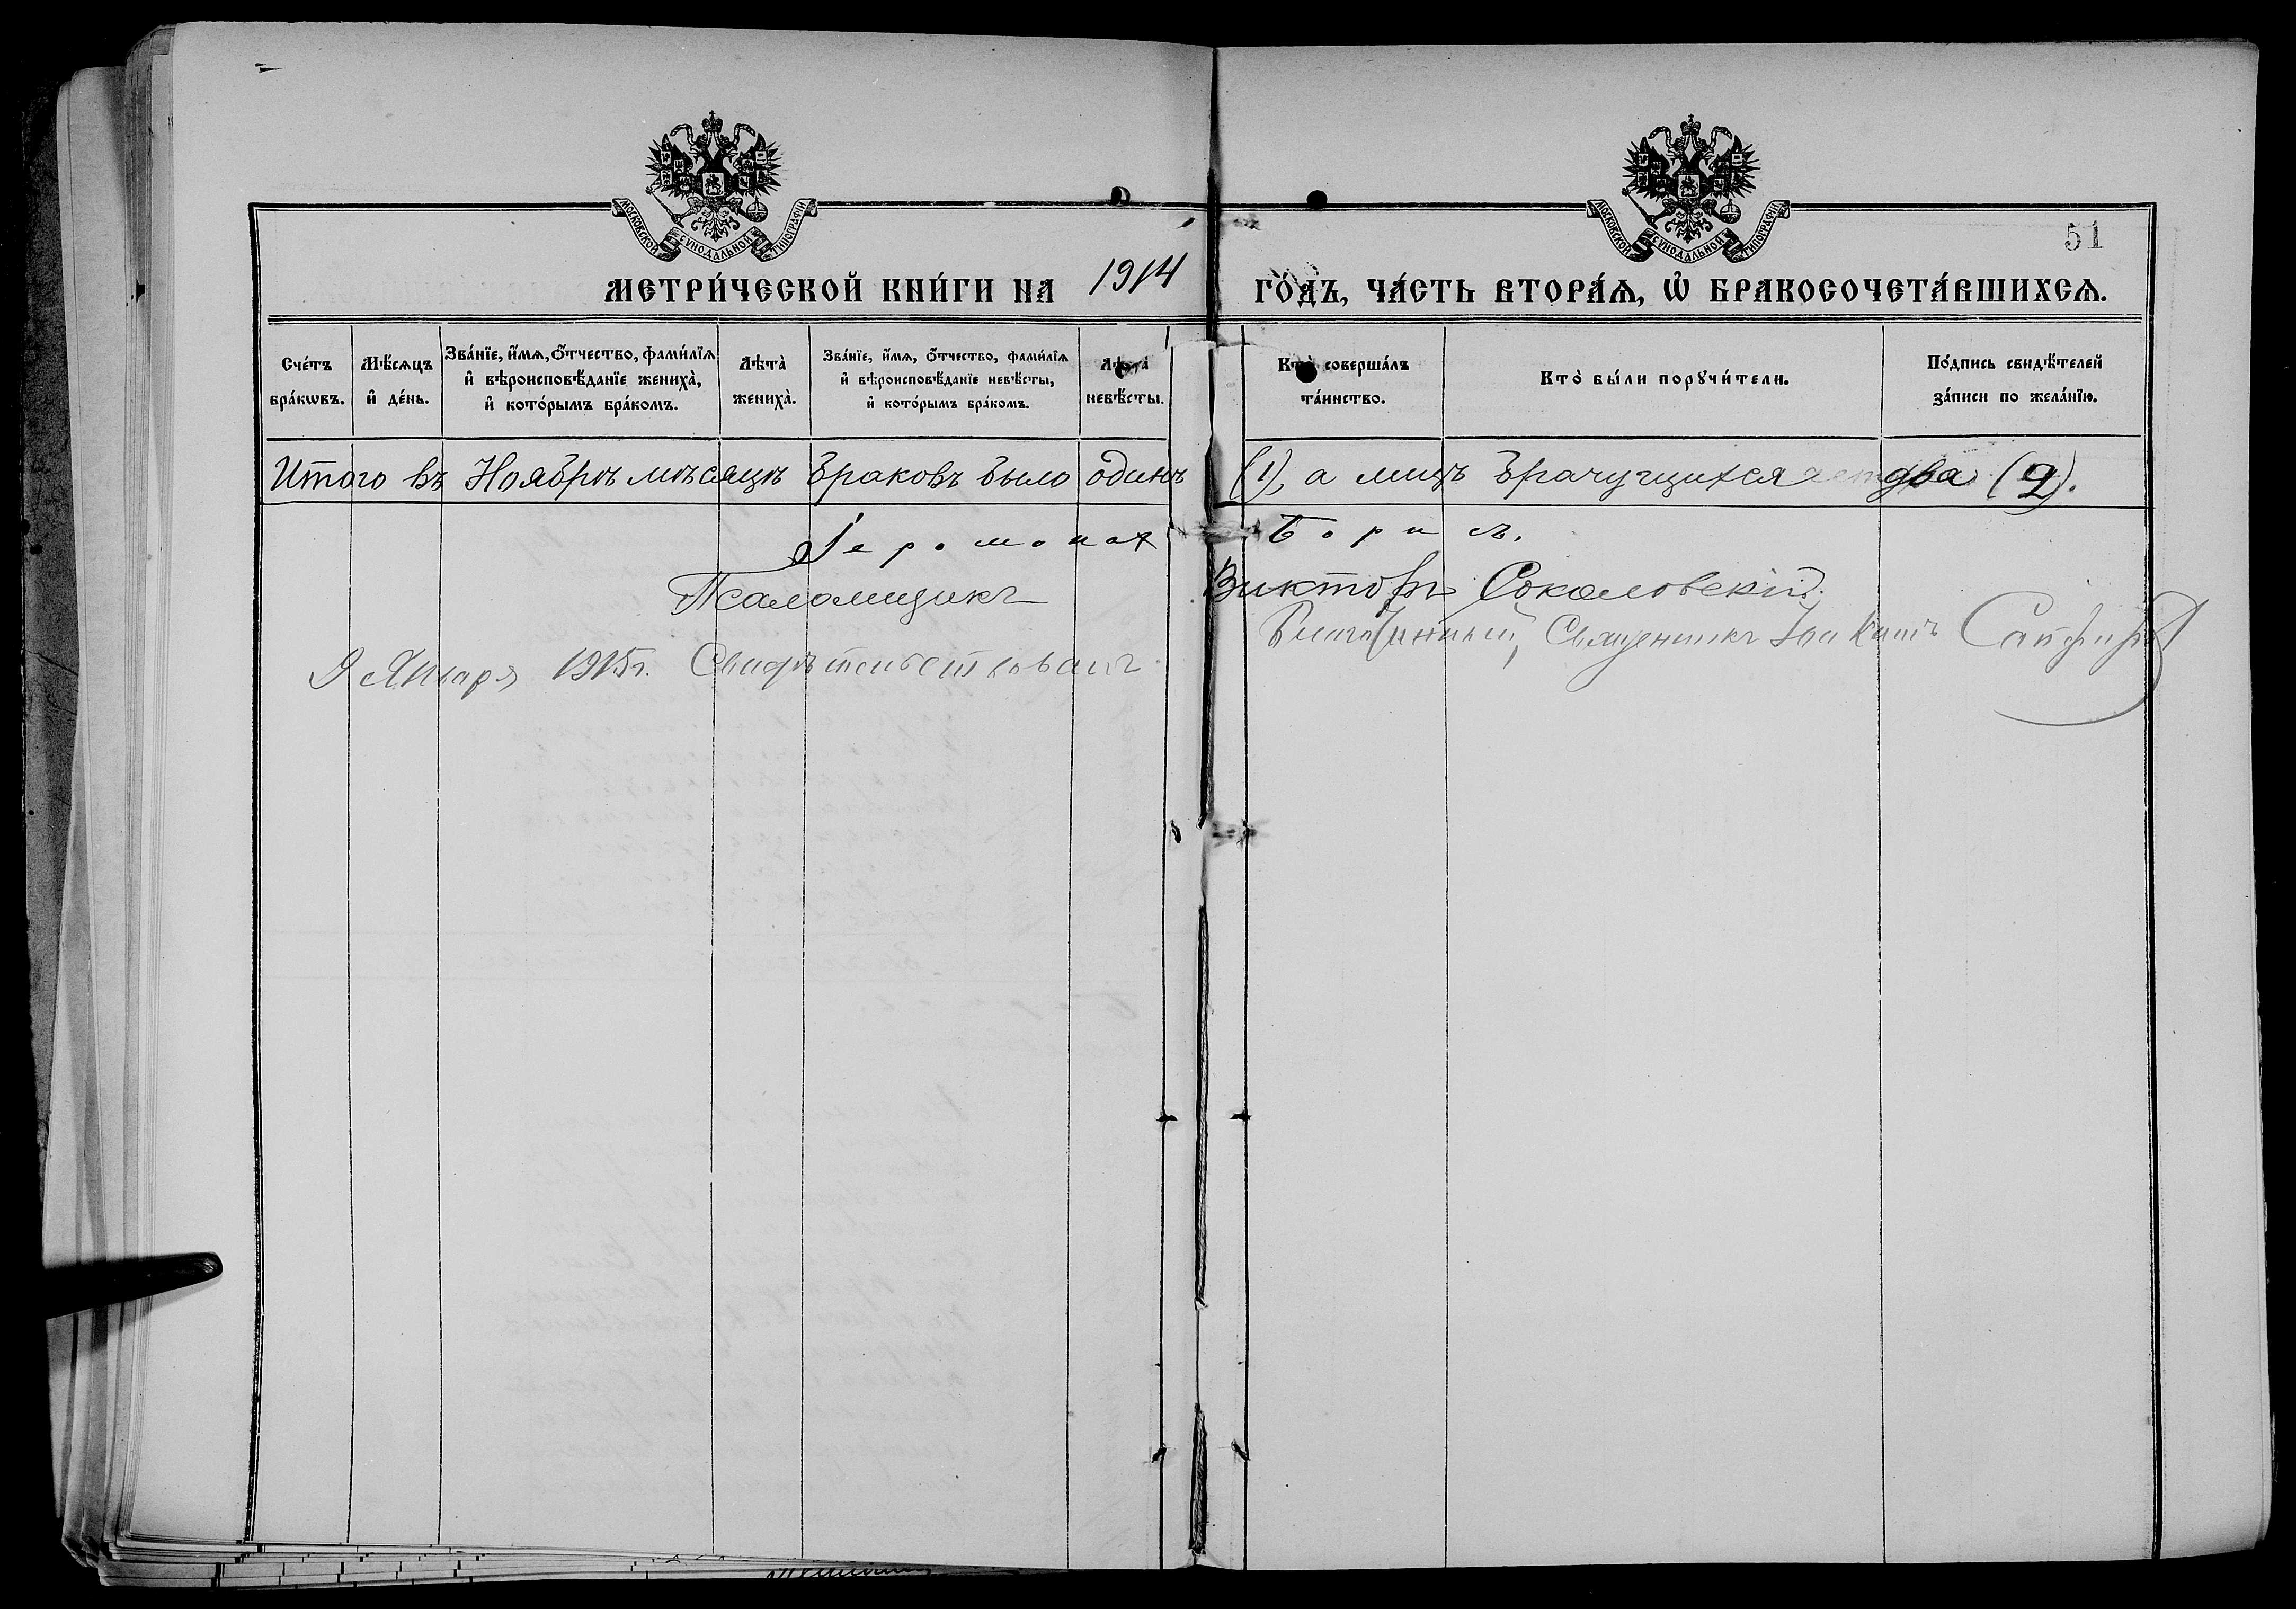 МОСКОВСКОЙ СѴНОДАЛЬНОЙ ТИПОГРАФІИ
МОСКОВСКОЙ СѴНОДАЛЬНОЙ ТИПОГРАФІИ
51
МЕТРИ́ЧЕСКОЙ КНИ́ГИ НА 1914 ГО́ДЪ, ЧА́СТЬ ВТОРА́Ѧ, Ѡ҆ БРАКОСОЧЕТА́ВШИХСѦ.
Сче́тъ бра́кѡвъ.
Мѣ́сѧцъ и҆ де́нь.
Зва́нїе, и҆́мѧ, ѻ҆́тчество, фами́лїѧ
и҆ вѣроисповѣ́данїе жениха̀,
и҆ кото́рымъ бра́комъ.
Лѣта̀ жениха̀.
Зва́нїе, и҆́мѧ, ѻ҆́тчество, фами́лїѧ
и҆ вѣроисповѣ́данїе невѣ́сты,
и҆ кото́рымъ бра́комъ.
Лѣта̀ невѣ́сты.
Кто̀ соверша́лъ
та́инство.
Кто̀ бы́ли порꙋчи́тели.
По́дпись свидѣ́телей
за́писи по жела́нїю.
Итого въ Ноябрѣ мѣсяцѣ браковъ было одинъ (1), а лицъ брачущихся два (2).
Іеромонах Борисъ.
Псаломщикъ Викторъ Соколовскій.
9 Января 1915 г. Свидѣтельствовалъ Благочинный, Священникъ Іоакимъ Сапфировъ